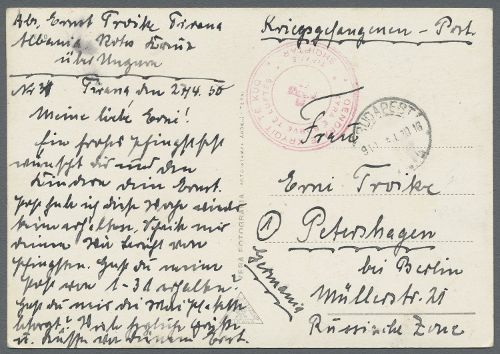 Abs. Ernst Troike Tirana
Albania Roto Kreuz
über Ungarn
Tirana den 27/4. 50
Meine liebe Erni!
Ein frohes Pfingstfest
wünscht dir und den
Kindern dein Ernst.
Post habe ich diese Woche wieder
keine erhalten. Schreib mir
Bericht von
Pfingsten. Hast du meine
Post von erhalten?
Hast du mir die Mai
Viele herzliche Grüße
u. Küsse von deinem Ernst.
Kriegsgefangenen - Post
BUDAPEST
Frau
Erni Troike
① Petershagen
bei Berlin
Müllerstr. 21
Russische Zone
Germania